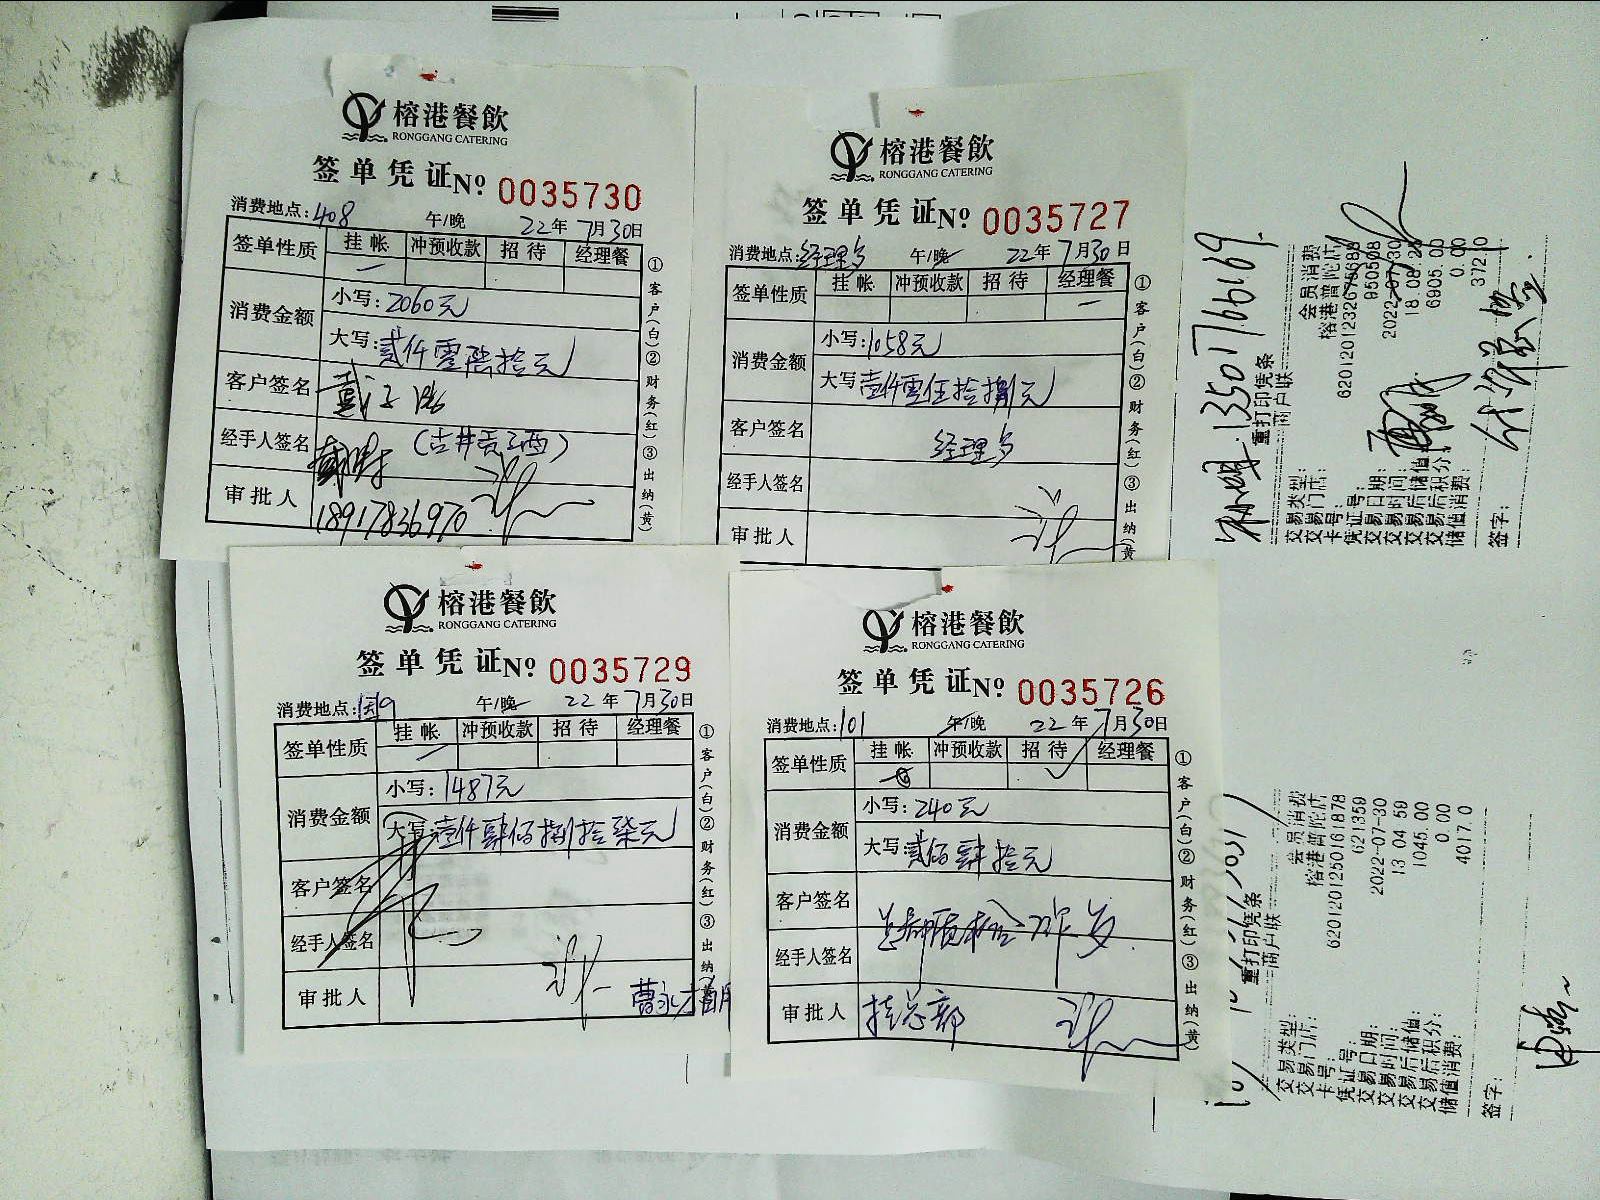 榕港餐飲
RONGGANG CATERING
签单凭证 Nº 0035730
消费地点:408 午/晚 22年7月30日
签单性质 挂帐 冲预收款 招待 经理餐
消费金额 小写:2060元
大写:贰仟零陆拾元
客户签名
经手人签名 (古井贡酒)
审批人 18917836970
①客户(白)②财务(红)③出纳(黄)
榕港餐飲
RONGGANG CATERING
签单凭证 Nº 0035727
消费地点:经理 午/晚 22年7月30日
签单性质 挂帐 冲预收款 招待 经理餐
消费金额 小写:1058元
大写 壹仟零伍拾捌元
客户签名 经理
经手人签名
审批人
①客户(白)②财务(红)③出纳(黄
榕港餐飲
RONGGANG CATERING
签单凭证 Nº 0035729
消费地点: 午/晚 22年7月30日
签单性质 挂帐 冲预收款 招待 经理餐
消费金额 小写:1487元
大写:壹仟肆佰捌拾柒元
客户签名
经手人签名
审批人
①客户(白)②财务(红)③出纳
榕港餐飲
RONGGANG CATERING
签单凭证 Nº 0035726
消费地点:101 午/晚 22年7月30日
签单性质 挂帐 冲预收款 招待 经理餐
消费金额 小写:240元
大写:贰佰肆拾元
客户签名
经手人签名
审批人 挂总部
①客户(白)②财务(红)③出纳(黄)
13501766169
重打印凭条
商户联
交易类型: 会员消费
交易门店: 榕港普陀店
卡号:
凭证号: 950508
交易日期: 2022-07-30
交易时间:
交易后储值: 6905.00
交易后积分: 0.00
储值消费: 372.10
签字:
重打印凭条
商户联
交易类型: 会员消费
交易门店: 榕港普陀店
卡号: 6201201250161878
凭证号: 621359
交易日期: 2022-07-30
交易时间: 13 04 59
交易后储值: 1045.00
交易后积分: 0.00
储值消费: 4017.0
签字: